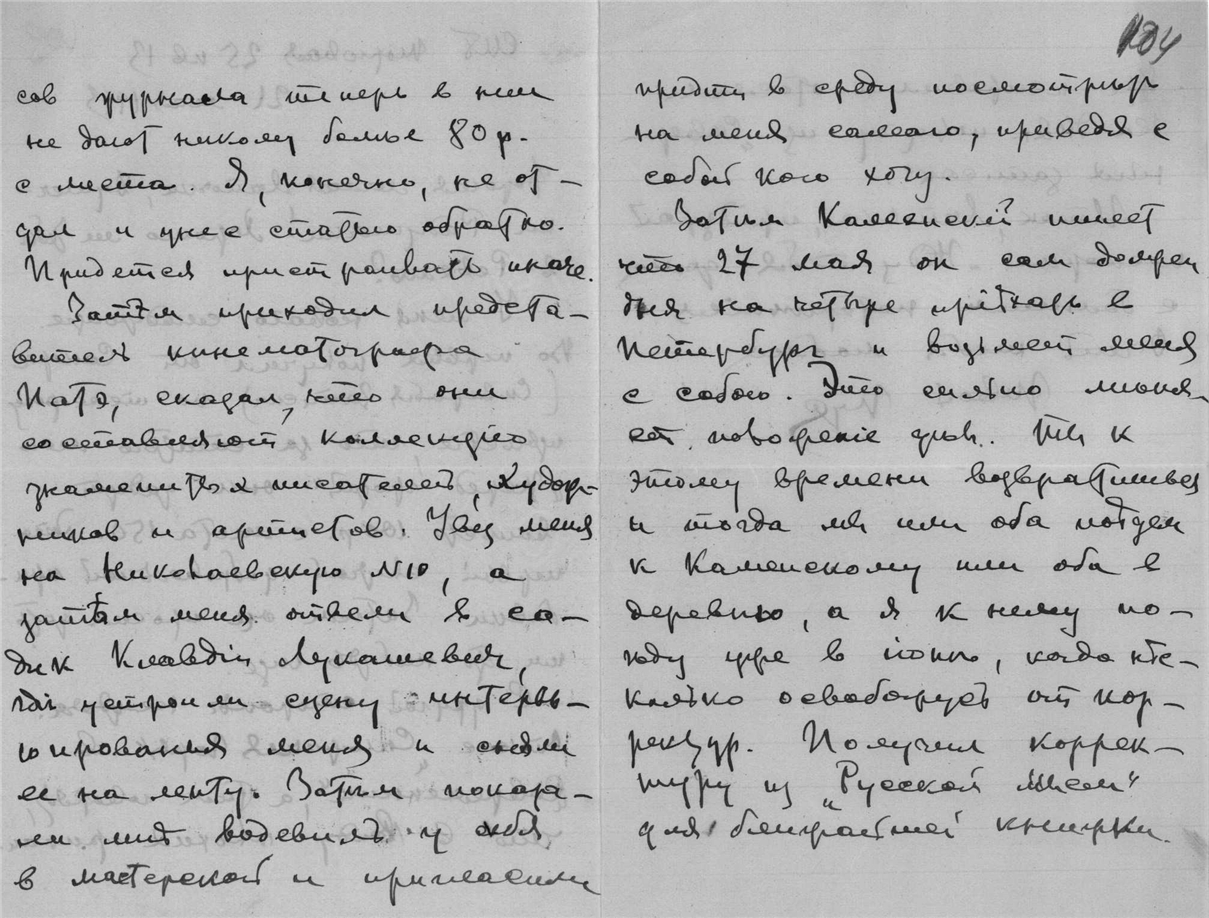 184
сов журнала теперь в нем
не дают никому более 80 р.
с листа. Я, конечно, не от-
дал и унес статью обратно.
Придется пристраивать иначе.
Затѣм приходил предста-
витель кинематографа
Патэ, сказал, что они
составляют коллекцію
знаменитых писателей, худож-
ников и артистов. Увез меня
на Николаевскую №10, а
затѣм меня отвели в са-
дик Клавдіи Лукашевич,
гдѣ устроили сцену интервь-
юированья меня и сняли
ее на ленту. Затѣм показа-
ли мнѣ водевиль у себя
в мастерской и пригласили
придти в среду посмотрѣть
на меня самого, приведя с
собой кого хочу.
Затѣм Каменскій пишет
что 27 мая он сам
дня на четыре пріѣхать в
Петербург и возьмет меня
с собою. Это сильно мѣня-
ет положеніе дѣл. Ты к
этому времени возвратишься
и тогда мы или оба поѣдем
к Каменскому или оба в
деревню, а я к нему по-
ѣду уже в іюнѣ, когда нѣс-
колько освобожусь от кор-
ректур. Получил коррек-
туру из „Русской Мысли“
для ближайшей книжки.